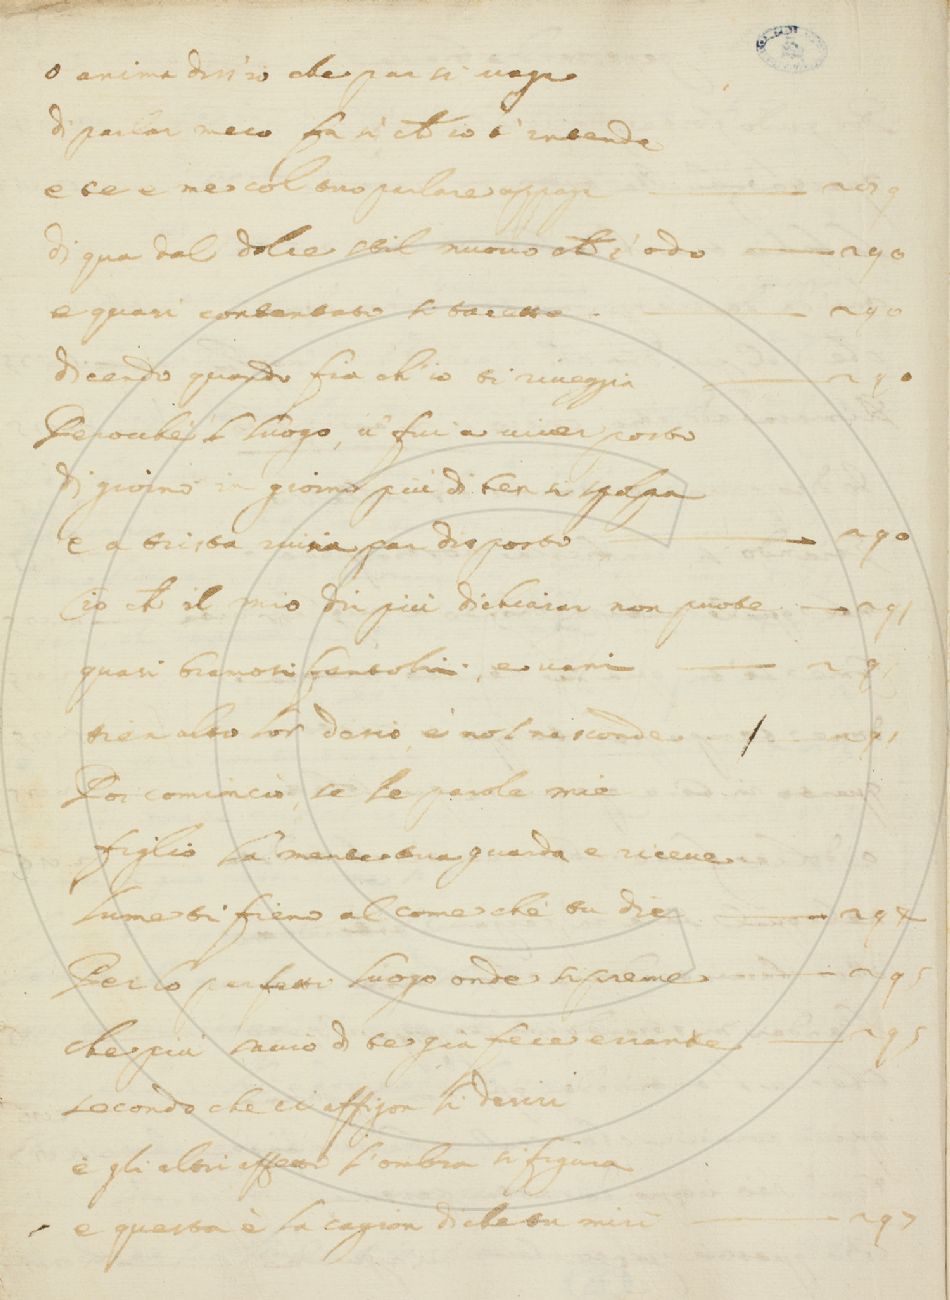 o anima diss'io che par si vaga
di parlar meco fa si ch'io t'intenda
e te e me col tuo parlare appaga 289
di qua dal dolce stil nuovo ch'i' odo 290
e quasi contentato si tacette 290
dicendo quando fia ch'io ti riveggia 290
Perocchè 'l luogo, u' fui a viver posto
di giorno in giorno più di ben si spolpa
e a trista ruina par disposto 290
Ciò ch' il mio dir più dichiarar non puote 291
quasi bramosi fantolini, e vani 291
tien alto lor desio, e nol nasconde 291
Poi cominciò, se le parole mie
figlio la mente tua guarda e riceve
lume ti fieno al come che tu die 294
Perlo perfetto luogo onde si preme 295
che più savio di te già fece errante 295
secondo che ci affigon li desiri
e gli altri affetti l'ombra si figura
e questa è la cagion di che tu miri 297